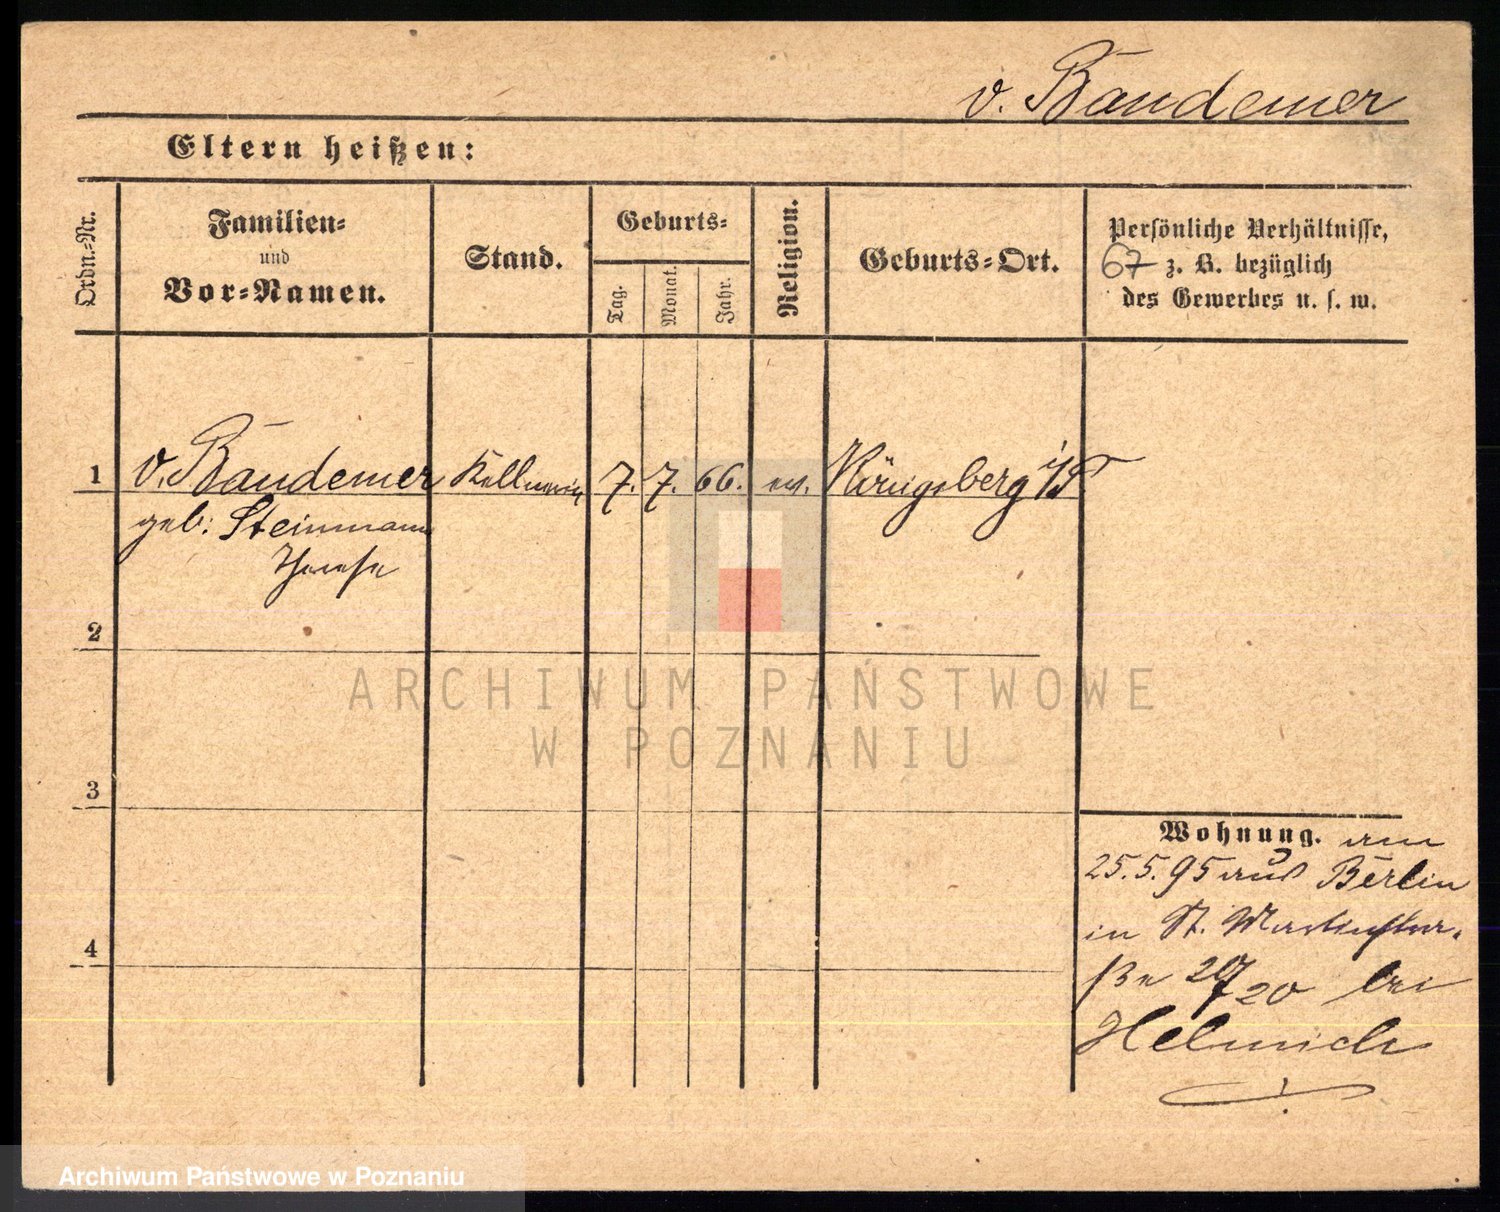 v. Bandemer
Eltern heißen:
Ordn.-Nr.
Familien-
und
Vor-Namen.
Stand.
Geburts-
Tag.
Monat.
Jahr.
Religion.
Geburts-Ort.
Persönliche Verhältnisse,
67 z. B. bezüglich
des Gewerbes u. s. w.
1 v. Bandemer Kellnerin 7. 7. 66. ev. Königsberg i/P.
geb: Steinmann
Therese
2
3
4
Wohnung. am
25.5.95 aus Berlin
in St. Martinstra-
ße 20 bei
Helmich
ARCHIWUM PAŃSTWOWE
W POZNANIU
Archiwum Państwowe w Poznaniu